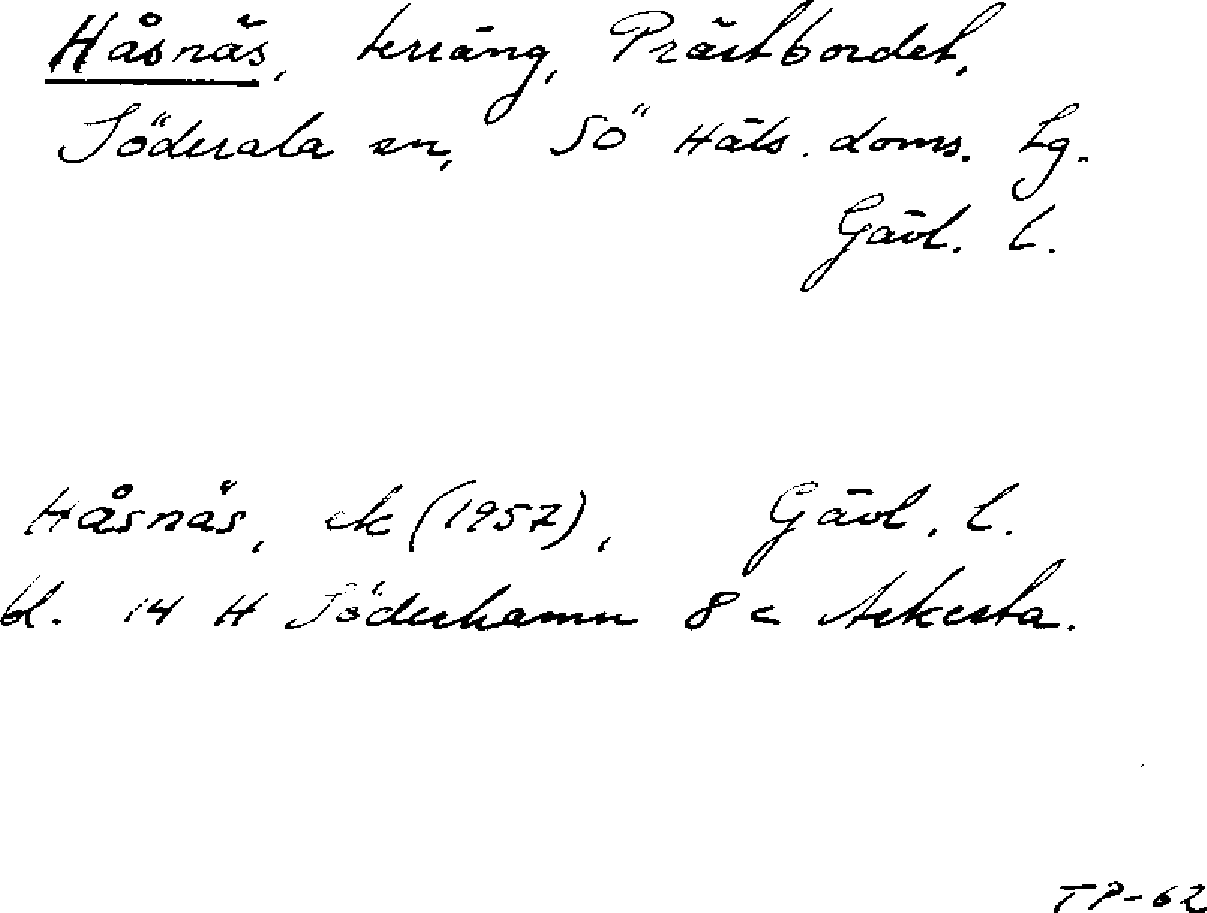 Håsnäs, terräng, Prästbordet,
Söderala sn, Sö Häls. doms. Lg.
Gävl. l.
Håsnäs, ek (1957), Gävl. l.
bl. 14 H Söderhamn 8 c Askesta.
TP-62